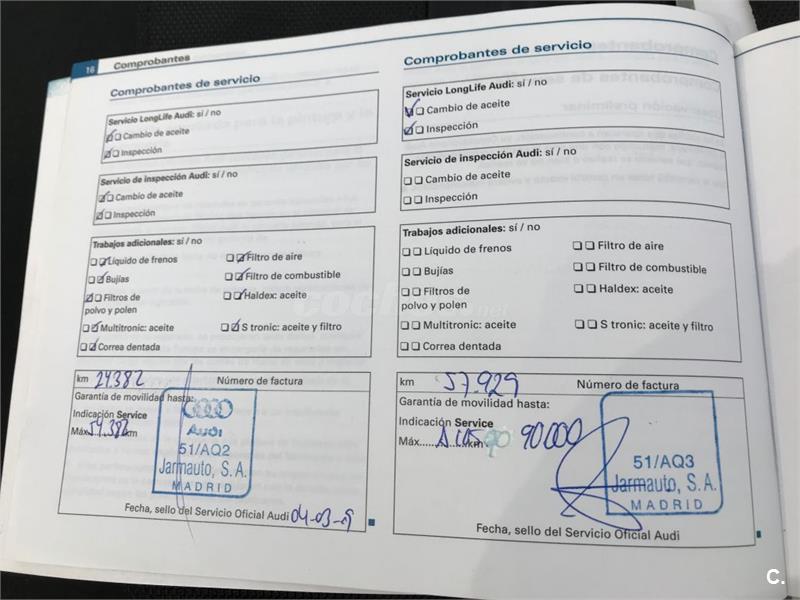 16 Comprobantes
Comprobantes de servicio
Servicio LongLife Audi: sí / no
Cambio de aceite
Inspección
Servicio de inspección Audi: sí / no
Cambio de aceite
Inspección
Trabajos adicionales: sí / no
Líquido de frenos
Filtro de aire
Bujías
Filtro de combustible
Filtros de
polvo y polen
Haldex: aceite
Multitronic: aceite
S tronic: aceite y filtro
Correa dentada
km 24.382
Número de factura
Garantía de movilidad hasta:
Indicación Service
Máx. 54.382 km
AUDI
51/AQ2
Jarmauto, S.A.
MADRID
Fecha, sello del Servicio Oficial Audi 04-03-9
Comprobantes de servicio
Servicio LongLife Audi: sí / no
Cambio de aceite
Inspección
Servicio de inspección Audi: sí / no
Cambio de aceite
Inspección
Trabajos adicionales: sí / no
Líquido de frenos
Filtro de aire
Bujías
Filtro de combustible
Filtros de
polvo y polen
Haldex: aceite
Multitronic: aceite
S tronic: aceite y filtro
Correa dentada
km 57.929
Número de factura
Garantía de movilidad hasta:
Indicación Service
Máx. km 90.000
51/AQ3
Jarmauto, S.A.
MADRID
Fecha, sello del Servicio Oficial Audi
coches.net
C.